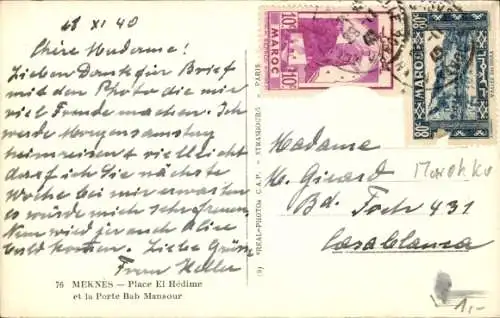 28 XI 40
Chère Madame!
Lieben Dank für Brief
mit den Photo die mir
viel Freude machen. Ich
werde Morgen samstag
heimreisen & vielleicht
darf ich Sie nächste
Woche bei mir erwarten
es würde mich sehr freuen.
Nun wird ja auch Alice
bald kommen. Liebe Grüsse
Frau Heller
76 MEKNÈS — Place El Hédime
et la Porte Bab Mansour
(9) "REAL-PHOTO" C.A.P. - STRASBOURG - PARIS
10c
MAROC
10c
80c
MAROC
80c
Madame
M. Girard
Marokko
Bd. Foch 431
Casablanca
1,-